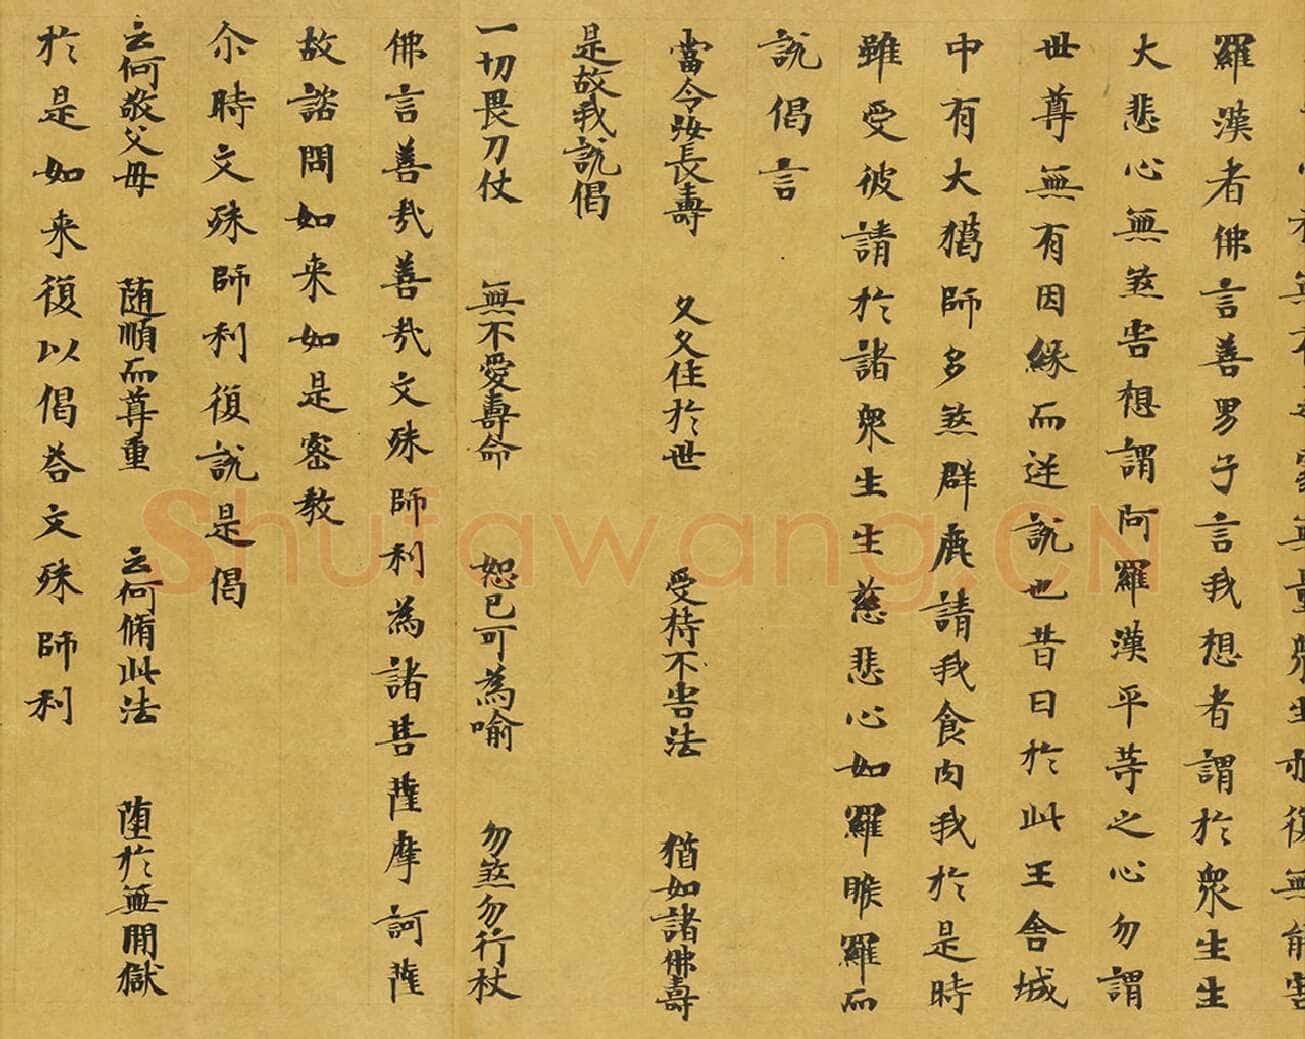 羅漢者佛言善男子言我想者謂於衆生生
大悲心無煞害想謂阿羅漢平等之心勿謂
世尊無有因緣而逆說也昔日於此王舍城
中有大獦師多煞群鹿請我食肉我於是時
雖受彼請於諸衆生生慈悲心如羅睺羅而
說偈言
當令汝長壽 久久住於世 受持不害法 猶如諸佛壽
是故我說偈
一切畏刀仗 無不愛壽命 恕己可為喻 勿煞勿行杖
佛言善哉善哉文殊師利為諸菩薩摩訶薩
故諮問如来如是密教
尒時文殊師利復說是偈
云何敬父毋 随順而尊重 云何脩此法 墮於無間獄
於是如来復以偈荅文殊師利
Shufawang.CN